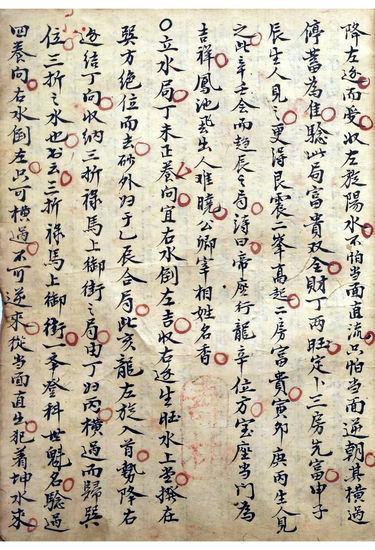 降左逐而变收左旋陽水不怕当面直流出怕当面逆朝其橫過
停蓄為佳驗此局富貴双全財丁两旺定卜三房先富申子
辰生人見之更得艮震二峯高起二房富貴寅卯庚丙生人見
之此辛壬会而趋辰之局詩曰帝座行龍辛位方宝座当門為
吉祥鳳池飛出人难曉公卿宰相姓名香
〇立水局丁未正養向宜右水倒左吉收右逐生旺水上堂撥在
巽方绝位而去砂外归于乙辰合局此亥龍左旋入首勢降右
逐结丁向收纳三折禄馬上御街之局由丁归丙橫過而歸巽
位三折之水也书云三折禄馬上御街一举登科世魁名驗過
四養向右水倒左只可橫過不可逆來從当面直生犯着坤水來